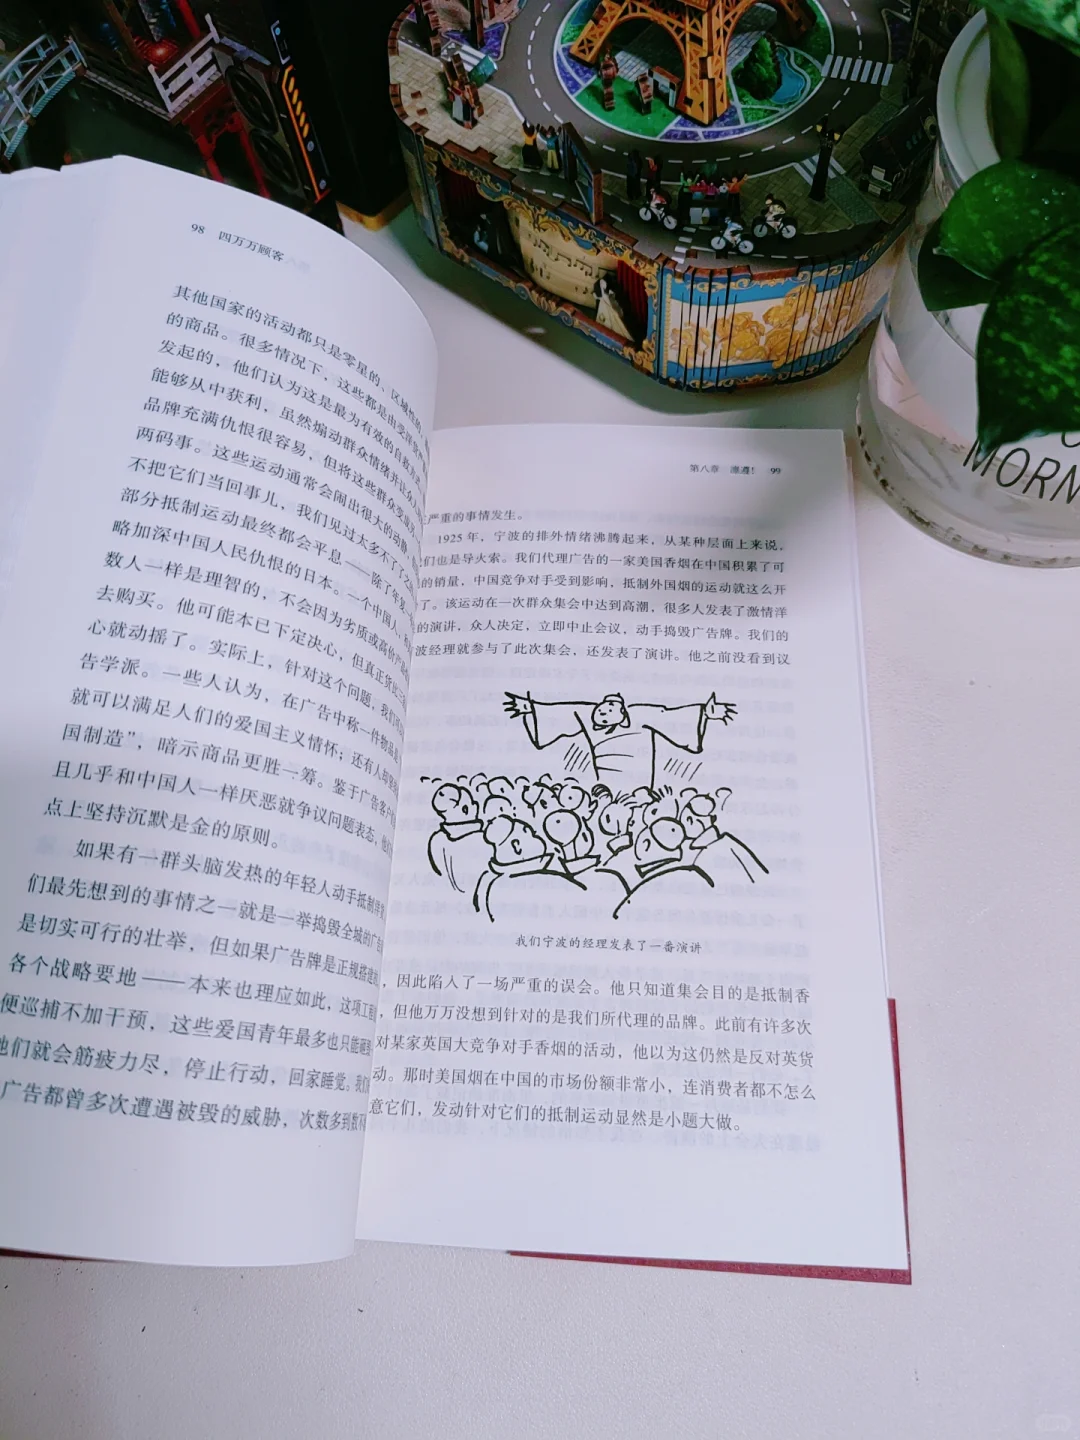 98 四万万顾客
其他国家的活动都只是零星的、区域性的,
的商品。很多情况下,这些都是由受洋货
发起的,他们认为这是最为有效的自救方式
能够从中获利,虽然煽动群众情绪并让众人
品牌充满仇恨很容易,但将这些群众
两码事。这些运动通常会闹出很大的动静
不把它们当回事儿,我们见过太多不了了之
部分抵制运动最终都会平息——除了年复
略加深中国人民仇恨的日本。一个中国人,
数人一样是理智的,不会因为劣质或高价
去购买。他可能本已下定决心,但真正货比三
心就动摇了。实际上,针对这个问题,我们
告学派。一些人认为,在广告中称一件物品是
就可以满足人们的爱国主义情怀;还有人
国制造”,暗示商品更胜一筹。鉴于广告客户
且几乎和中国人一样厌恶就争议问题表态,他
点上坚持沉默是金的原则。
如果有一群头脑发热的年轻人动手抵制洋货
们最先想到的事情之一就是一举捣毁全城的广告
是切实可行的壮举,但如果广告牌是正规搭建
各个战略要地——本来也理应如此,这项工
便巡捕不加干预,这些爱国青年最多也只能砸
他们就会筋疲力尽,停止行动,回家睡觉。我
广告都曾多次遭遇被毁的威胁,次数多到数不
第八章 灏遵! 99
严重的事情发生。
1925 年,宁波的排外情绪沸腾起来,从某种层面上来说,
们也是导火索。我们代理广告的一家美国香烟在中国积累了可
的销量,中国竞争对手受到影响,抵制外国烟的运动就这么开
了。该运动在一次群众集会中达到高潮,很多人发表了激情洋
的演讲,众人决定,立即中止会议,动手捣毁广告牌。我们的
波经理就参与了此次集会,还发表了演讲。他之前没看到议
我们宁波的经理发表了一番演讲
,因此陷入了一场严重的误会。他只知道集会目的是抵制香
,但他万万没想到针对的是我们所代理的品牌。此前有许多次
对某家英国大竞争对手香烟的活动,他以为这仍然是反对英货
动。那时美国烟在中国的市场份额非常小,连消费者都不怎么
意它们,发动针对它们的抵制运动显然是小题大做。
MORN